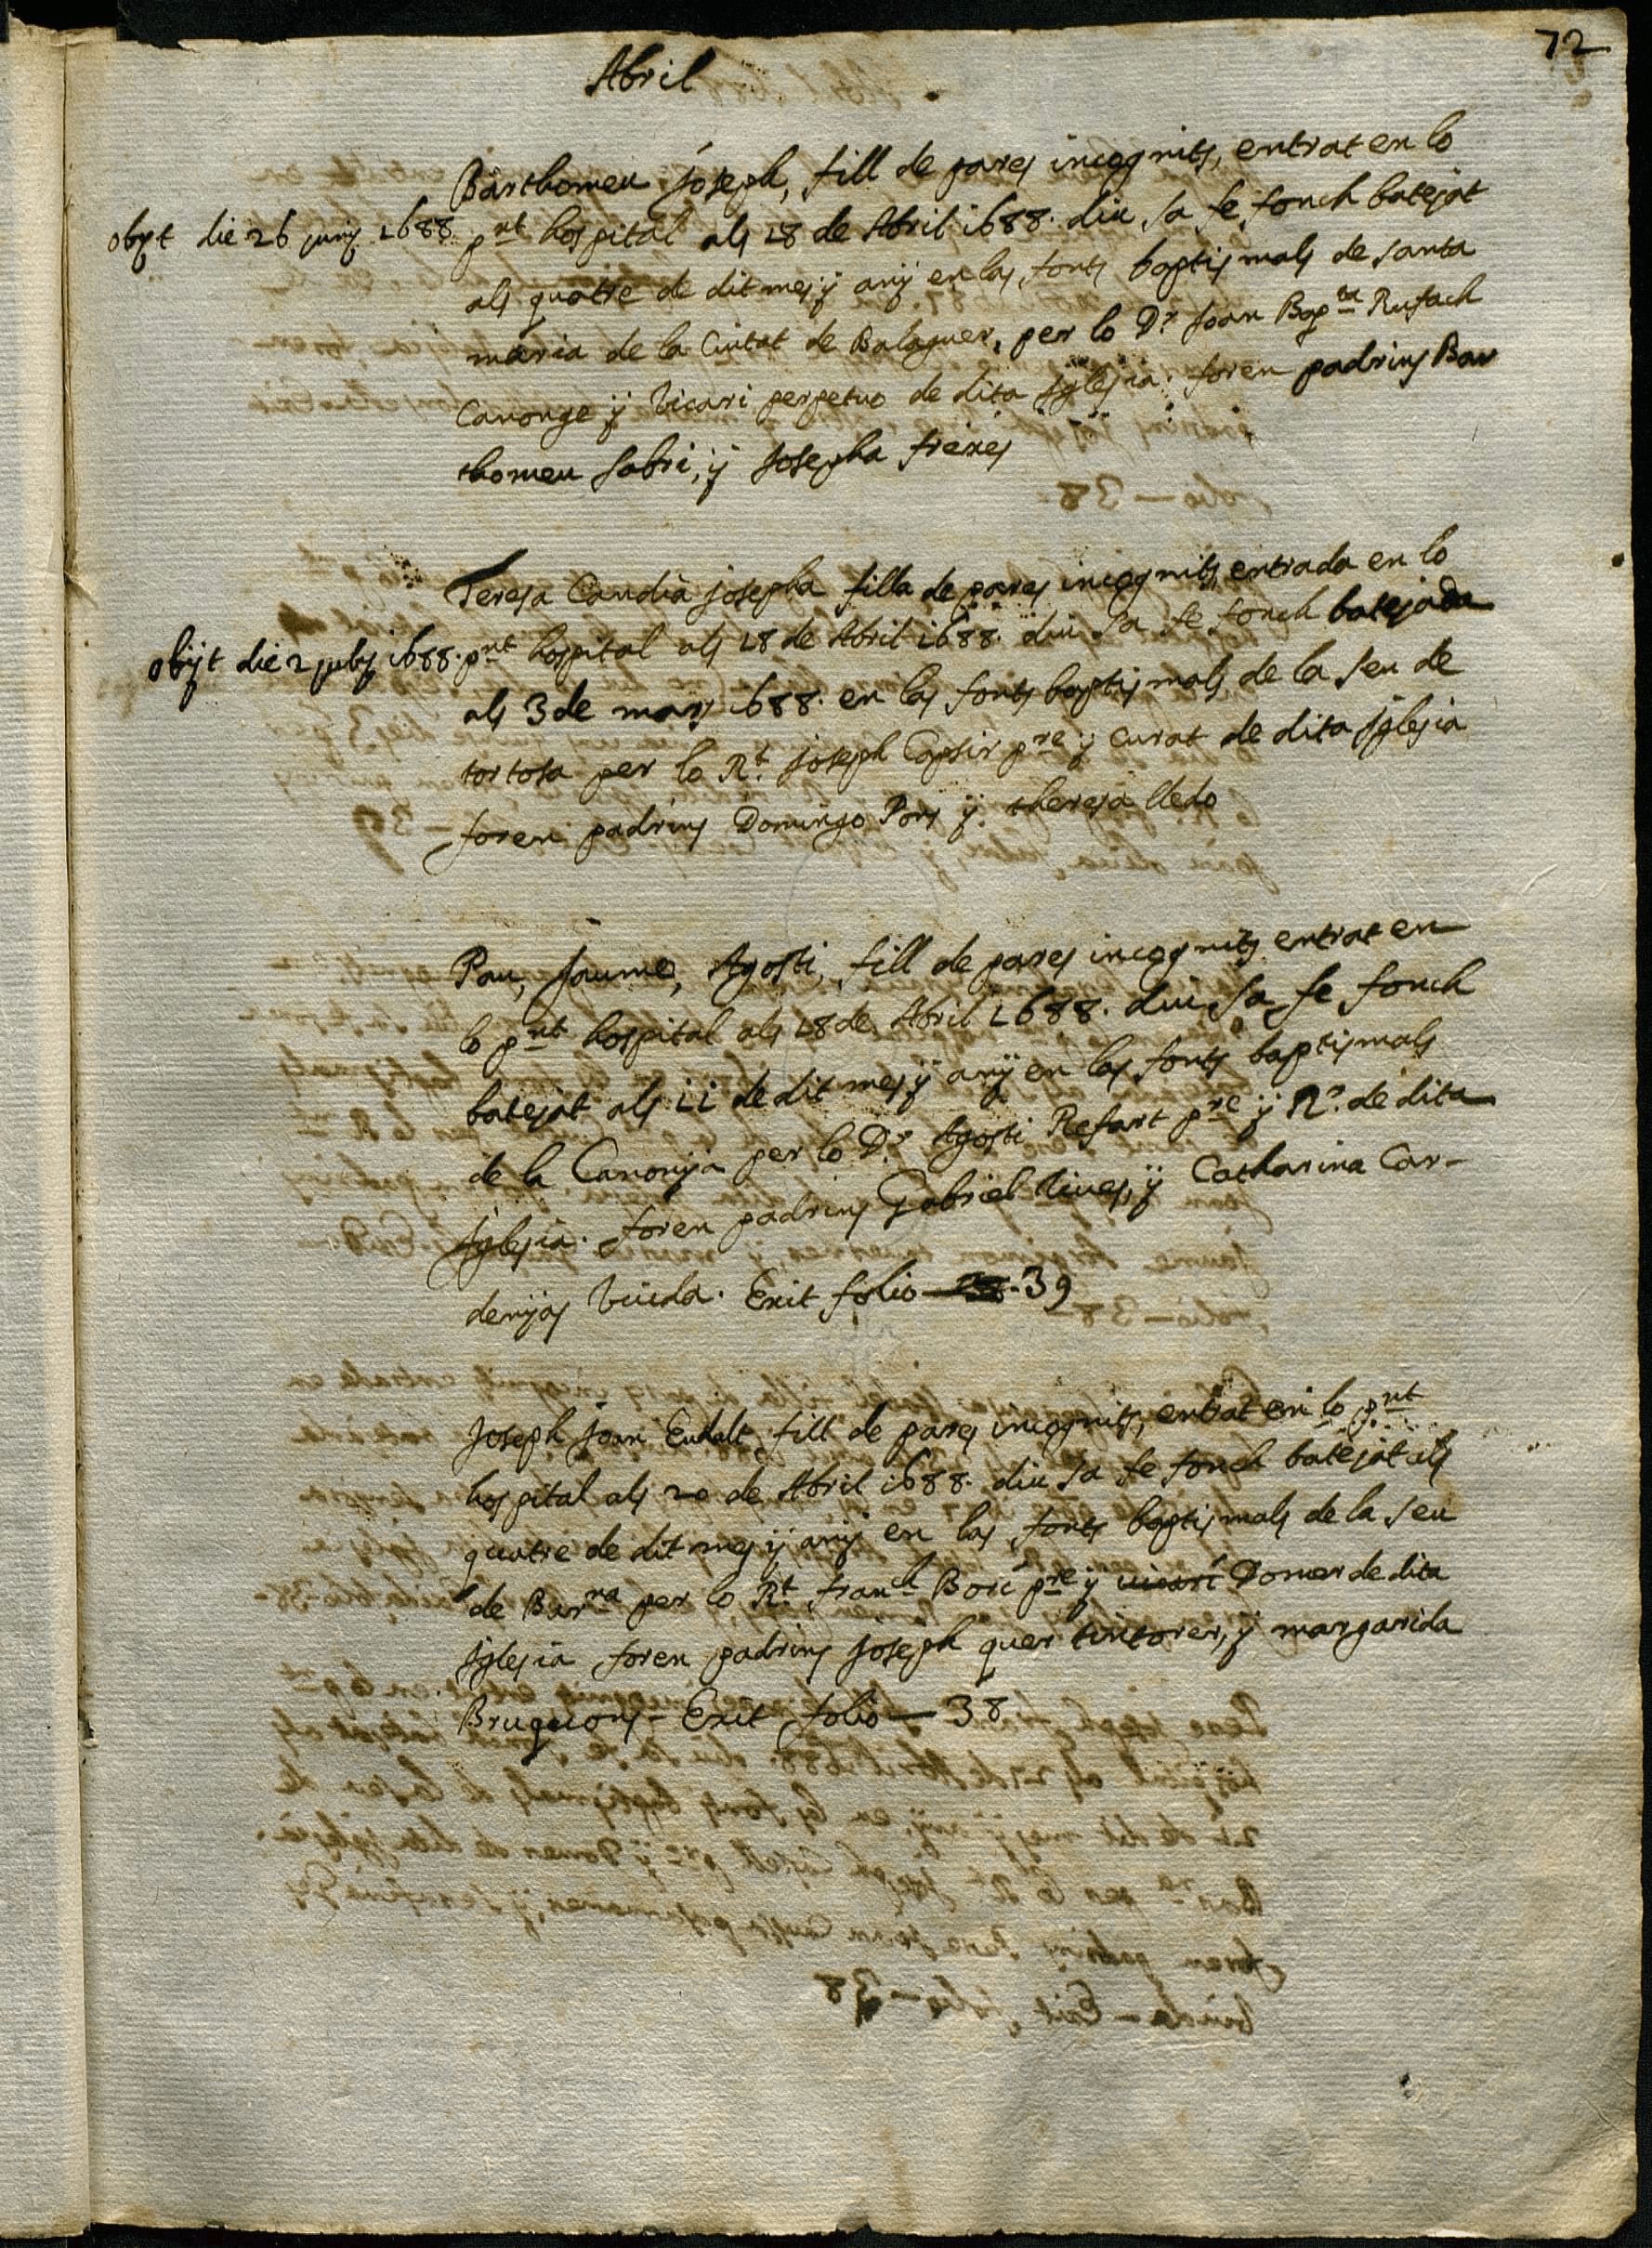 72
Abril
Barthomeu Joseph, fill de pares incognits, entrat en lo
obyt die 26 juny 1688. pnt hospital als 18 de Abril 1688. diu sa fe fonch batejat
als quatre de dit mes ÿ anÿ en las fonts baptismals de santa
maria de la Ciutat de Balaguer, per lo Dr. Joan Bapta Rufach
Canonge ÿ Vicari perpetuo de dita Iglesia. foren padrins Bar
thomeu Sabri, ÿ Josepha freixes
Teresa Candia Josepha filla de pares incognits, entrada en lo
obijt die 2 july 1688. pnt hospital als 18 de Abril 1688. diu sa fe fonch batejada
als 3 de mars 1688. en las fonts baptismals de la seu de
tortosa per lo Rt. Joseph Capsir pre ÿ curat de dita Iglesia
foren padrins Domingo Pons ÿ theresa lledo
Pau, Jaume, Agosti, fill de pares incognits entrat en
lo pnt hospital als 18 de Abril 1688. diu sa fe fonch
batejat als 11 de dit mes ÿ anÿ en las fonts baptismals
de la Canonja per lo Dr. Agosti Refart pre ÿ Rr. de dita
Iglesia. foren padrins Gabriel Vives, ÿ Catharina Car-
denyas Viuda. Exit folio — 39
Joseph Joan Eudalt, fill de pares incognits, entrat en lo pnt
hospital als 20 de Abril 1688. diu sa fe fonch batejat als
quatre de dit mes ÿ anÿ en las fonts baptismals de la seu
de Barna per lo Rt. franch Bori pre ÿ vicari Domer de dita
Iglesia foren padrins Joseph quer tintorer, ÿ margarida
Bruguions - Exit folio — 38